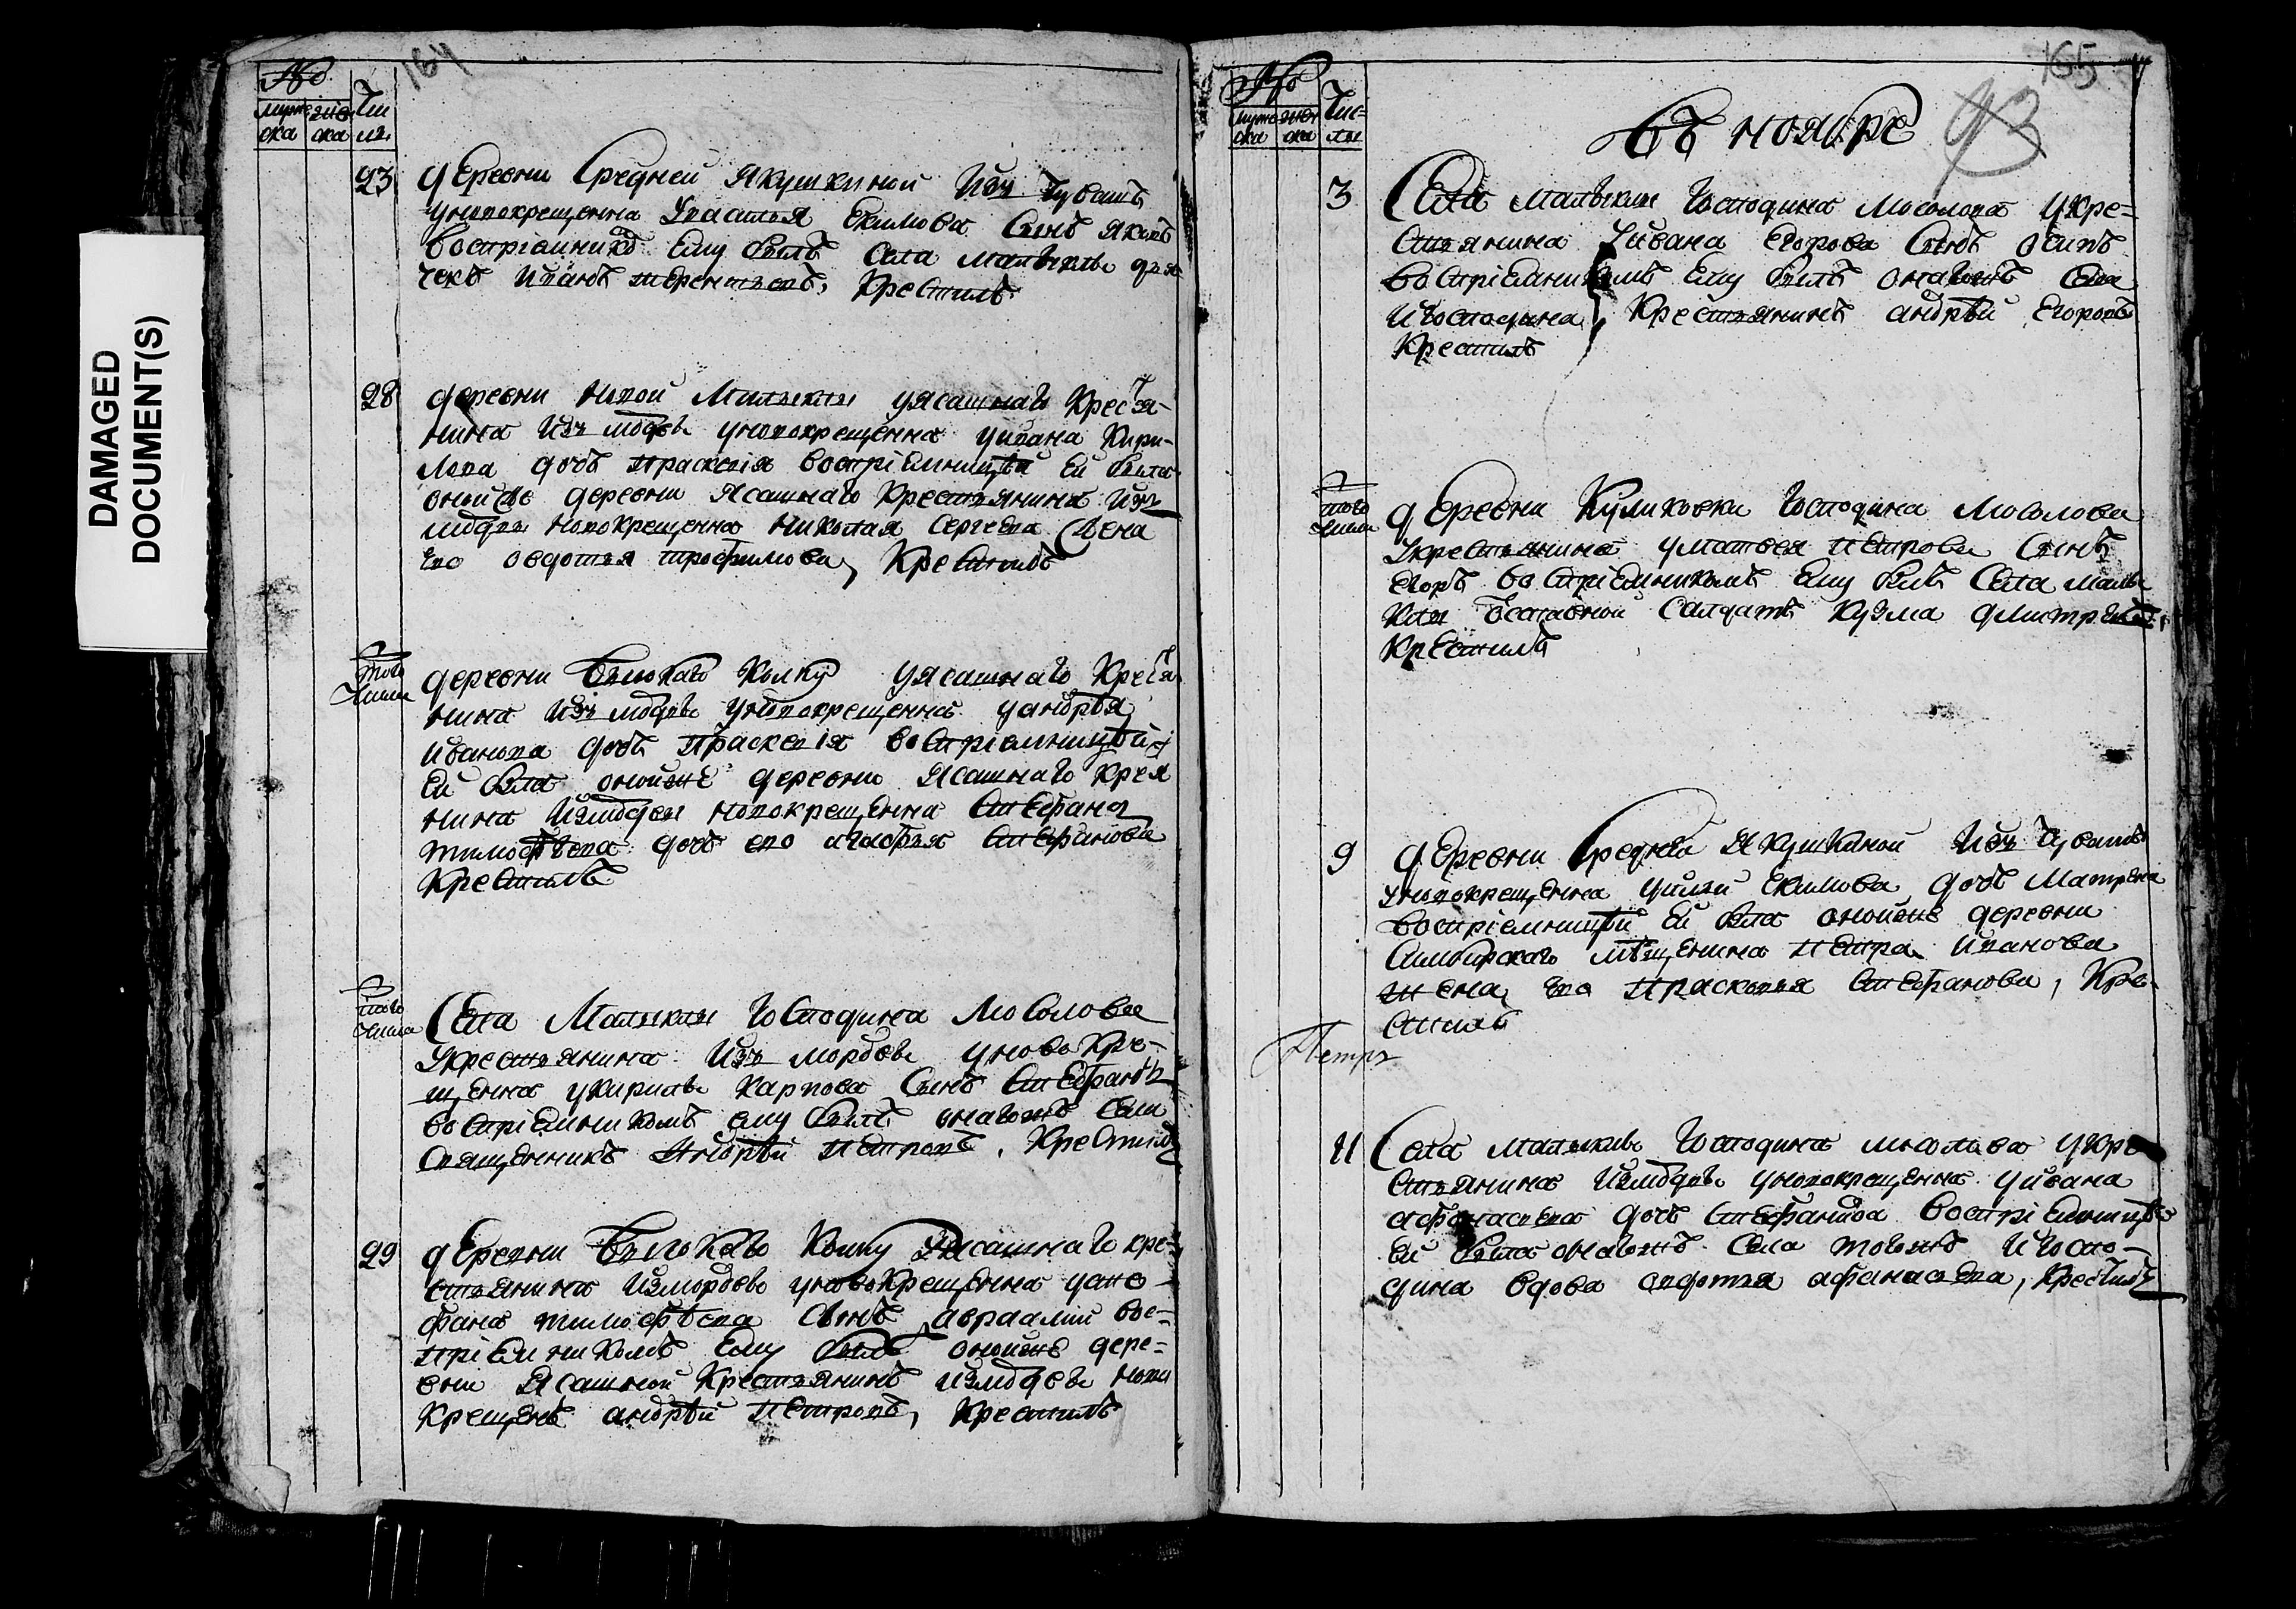 DAMAGED
DOCUMENT(S)
164
№
муже ска
женс ка
Чи сл.
23
деревни Средней Якушкиной Изъ Чувашъ
уновокрещенна Екимова Сынъ Якимъ
воспріемникъ Ему былъ Села Малыкли дья
чекъ Иванъ Терентьевъ, Крестилъ
28
деревни новой Малыклы уясашнаго Крестья-
нина Изъ мордвы уновокрещенна уивана Кири-
лова дочь праскевія воспріемницей Ей была
оной же деревни Ясашнаго Крестьянина Изъ
мордвы новокрещенна Николая Сергеева жена
Его овдотья трофимова, Крестилъ
того
числа
деревни Колку уясашнаго Крестья
нина Изъ мордвы уновокрещенна уандрѣя
иванова дочь праскевія воспріемницей
Ей была онойже деревни Ясашнаго Кресья
нина Изъмордвы новокрещенна Стефана
тимофѣева дочь ево агафья Стефанова
Крестилъ
того
числа
Села Малыклы Господина Мосолова
Укрестьянина Изъ мордвы уновокре-
щенна укирилы Карпова Сынъ Стефанъ
воспріемникомъ ему былъ онагожъ Села
Священникъ Андрѣй Петровъ, Крестилъ
29
деревни Колку Уясашнаго кре-
стьянина Измордвы уновокрещенна усте-
фана тимофѣева Сынъ авраамій вос-
пріемникомъ Ему былъ онойже дере-
вни Ясашной Крестьянинъ Измордвы ново
крещенъ андрѣй Петровъ, Крестилъ
165
№
мужс ка
женс ка
Чис- лы
въ ноябре
93
3
Села Малыклы Господина Мосолова укре-
стьянина Уивана Егорова Сынъ осипъ
воспріемникомъ Ему былъ онагожъ Села
Игосподина Крестьянинъ андрѣй Егоровъ
Крестилъ
того
числа
деревни Куликовки Господина Мосолова
Укрестьянина уматвея Петрова Сынъ
Егоръ воспріемникомъ Ему былъ Села Малы
клы отставной Салдатъ Кузма дмитреевъ,
Крестилъ
9
деревни Средней Якушкиной Изъ Чувашъ
уновокрещенна Екимова дочь Матрена
воспріемницей Ей была онойже деревни
Симбирскаго мѣщенина Петра Иванова
жена Ево Прасковья Стефанова, Кре-
стилъ
Петръ
11
Села Малыклы Господина мосолова укре
стьянина Измордвы уновокрещенна уивана
афонасьева дочь Стефанида воспріемницей
Ей была онагожъ Села тогожъ Игоспо-
дина вдова овдотья афанасьева, Крестилъ